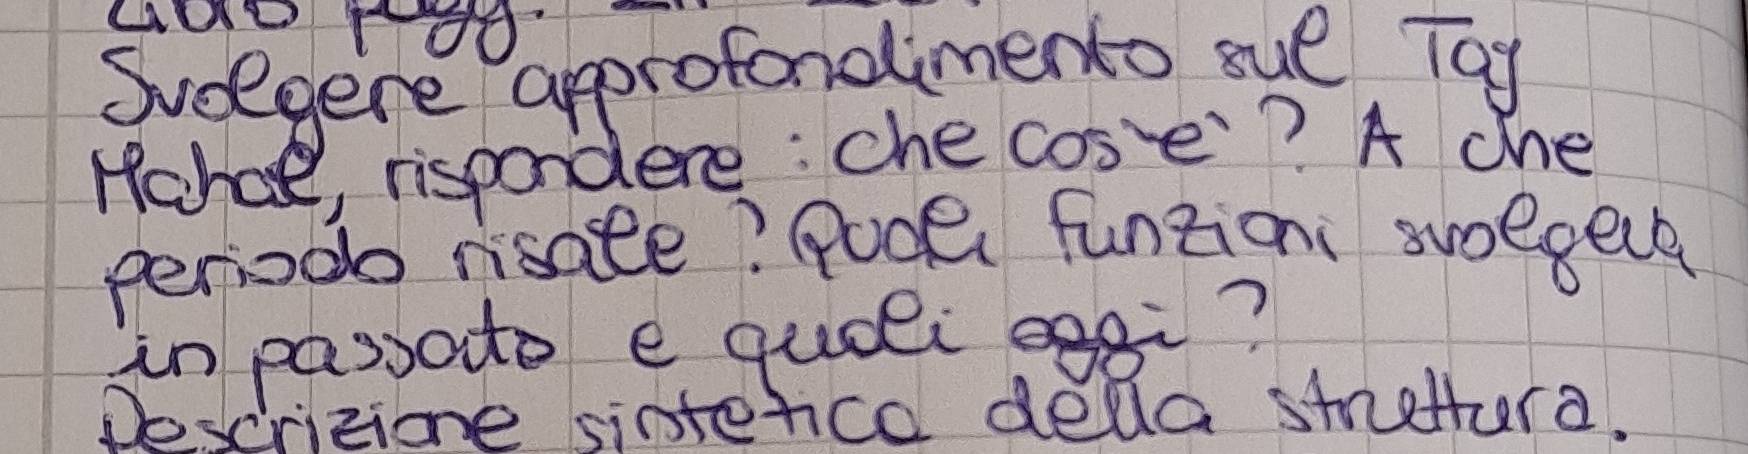 Libro pagg.
Svolgere approfondimento sul Taj
Mahal, rispondere: che cos'è? A che
periodo risale? Quali funzioni svolgeva
in passato e quali oggi?
Descrizione sintetica della struttura.